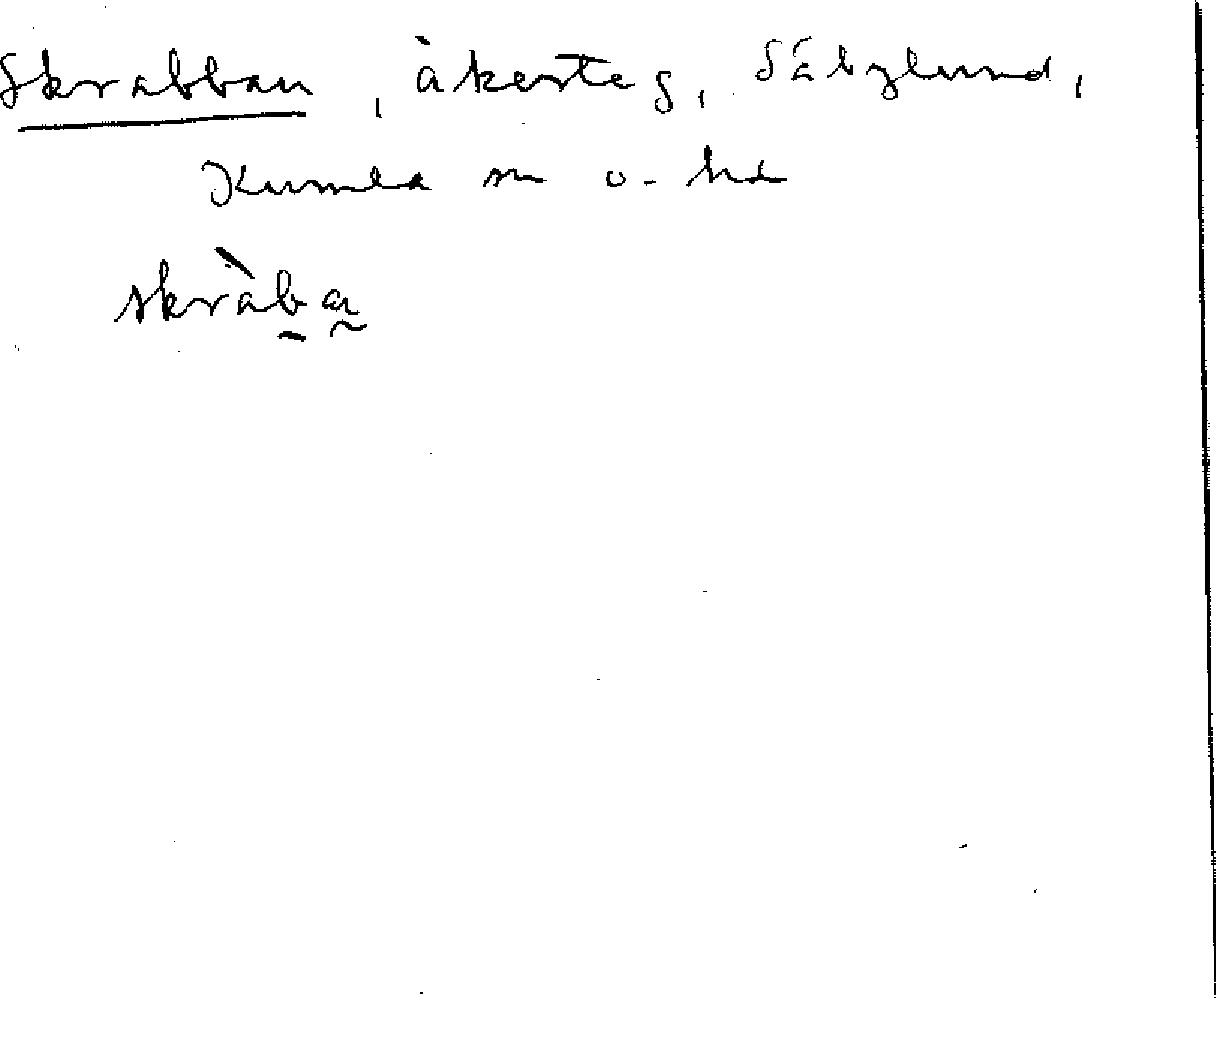 Skrabban, åkerteg, Säbylund,
Kumla sn o. hd
skràba